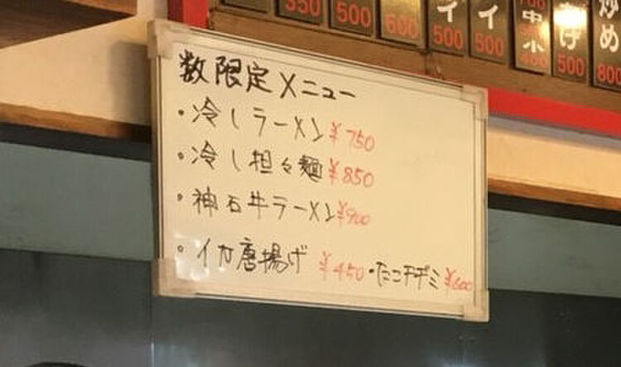 350 500 600 イ 500 イ 500 中 小 400 げ 500 炒め 800
数限定メニュー
・冷しラーメン¥750
・冷し担々麺¥850
・神石牛ラーメン¥900
・イカ唐揚げ ¥450・たこチヂミ¥600